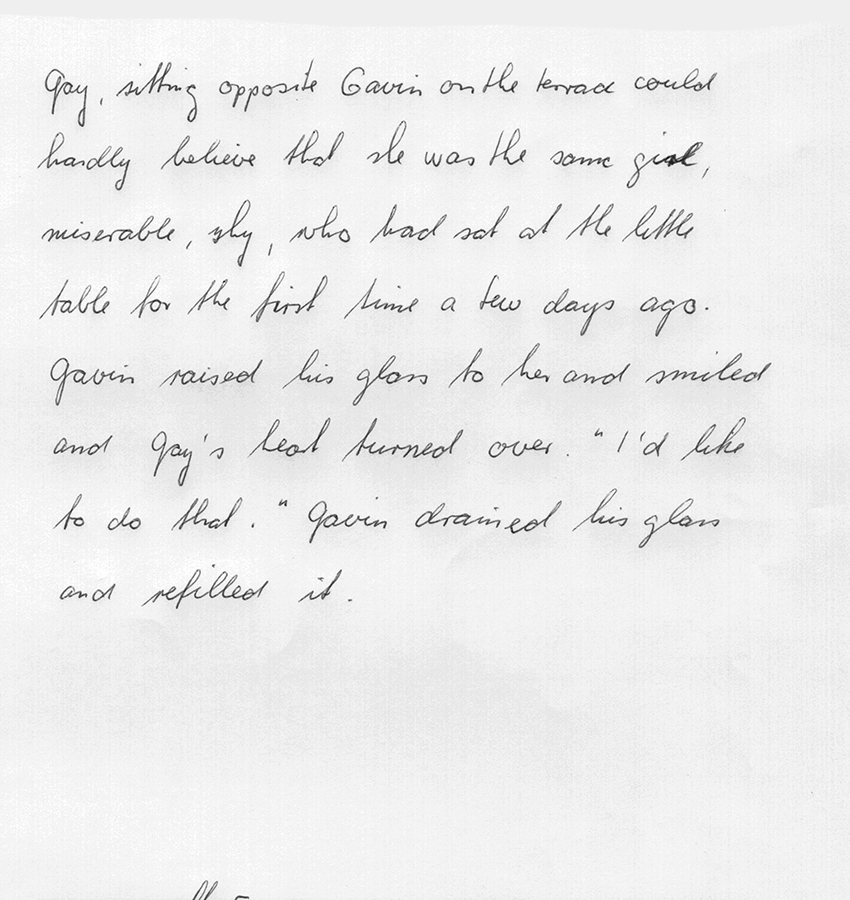 Gay, sitting opposite Gavin on the terrace could
hardly believe that she was the same girl,
miserable, shy, who had sat at the little
table for the first time a few days ago.
Gavin raised his glass to her and smiled
and Gay's heart turned over. "I'd like
to do that." Gavin drained his glass
and refilled it.